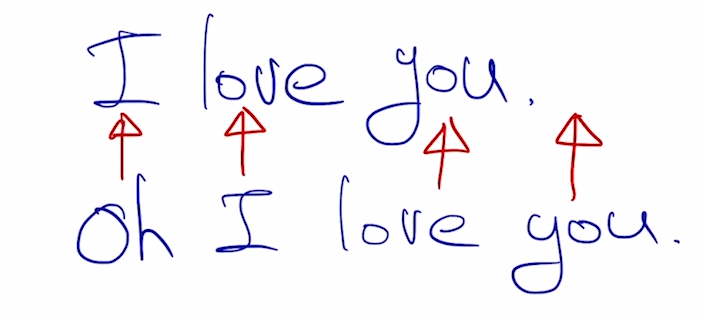 I love you.
Oh I love you.